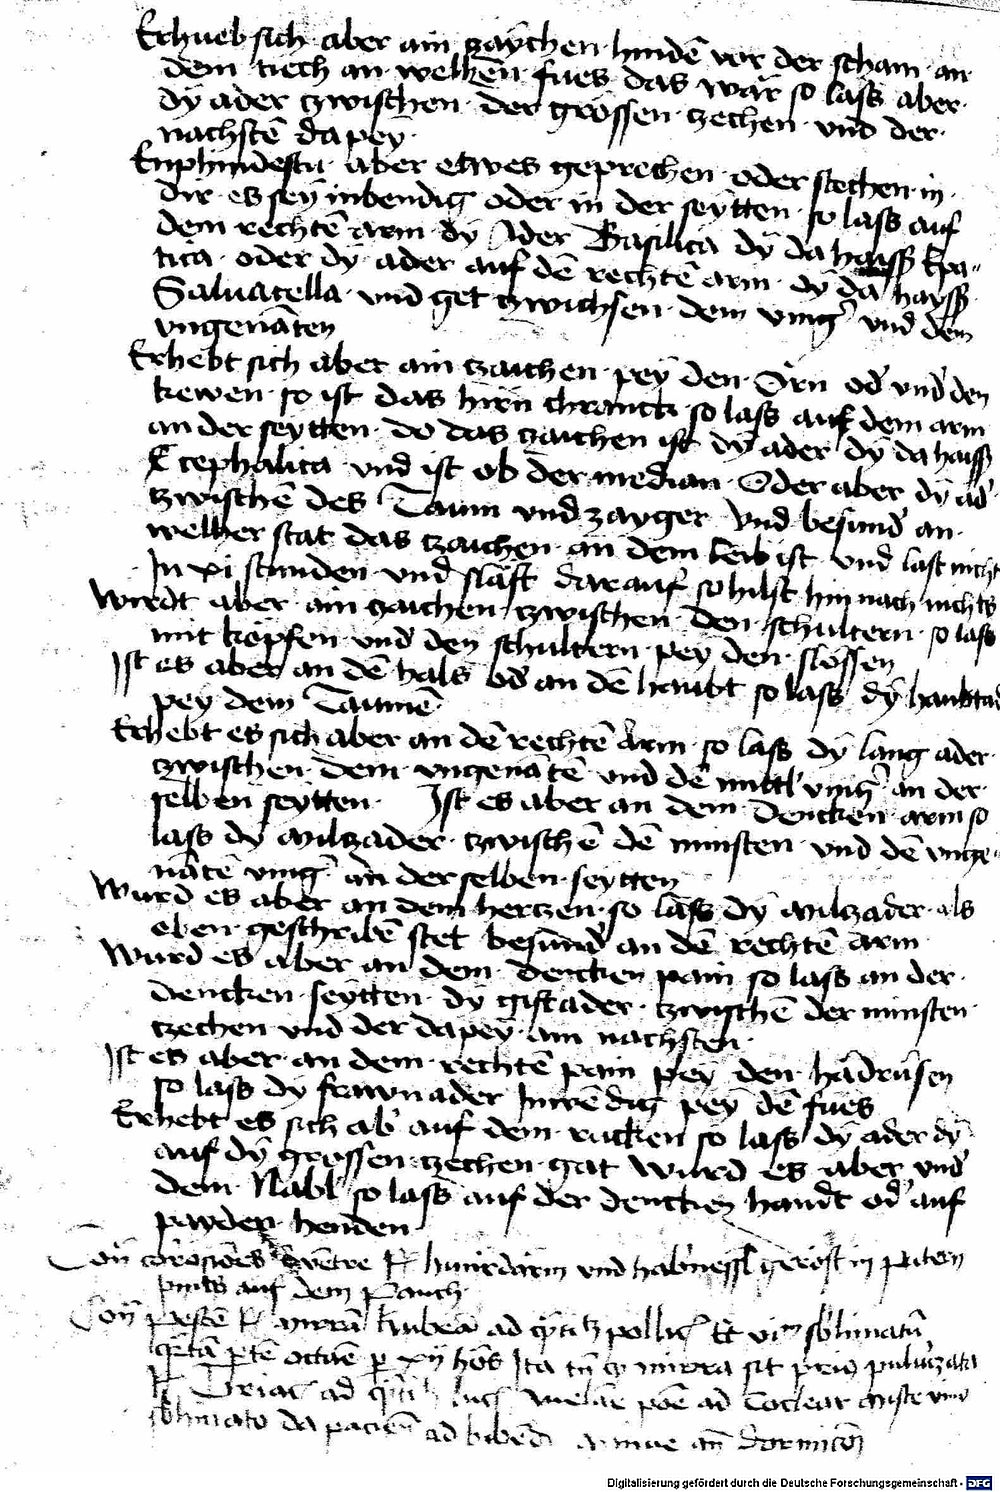 Erhueb sich aber ain zaychen hindē vor der scham an
dem diech an welhem fues das wär so lass aber
dÿ ader tzwischen der grossen zechen vnd der
nachstē dapeÿ
Enphindestu aber etwes geprechen oder stechen in
dir es seÿ inbendig oder in der seÿtten so lass auf
dem rechtē arm dÿ Ader Basilica dÿ da haÿss Epa
tica oder dÿ ader auf dē rechtē arm dÿ da haÿss
Saluatella vnd get tzwichsen dem ving vnd dem
vngenāten
Erhebt sich aber ain tzaichen peÿ den Orn od vnd den
kewen so ist das hirn chranck so lass auf dem arm
an der seÿtten do das tzaichen ist dÿ ader dÿ da haiss
Cephalica vnd ist ob der median Oder aber dÿ ad
tzwischē des Taum vnd zayger vnd besund an
welher stat das tzaichen an dem leib ist vnd last nicht
In xi stunden vnd slaft darauf so hilft hin nach nichts
Wirdt aber ain zaichen tzwischen den schultern so lass
mit köpfen vnd den schultern pey den slossen
Ist es aber an dē hals od an dē haubt so lass dÿ haubtad
pey dem Taumē
Erhebt es sich aber an dē rechtē Arm so lass dÿ lang ader
tzwischen dem vngenātē vnd dē mittl ving an der
selben seytten Ist es aber an dem dencken arm so
lass dÿ miltzader tzwischē dē minsten vnd dē vnge
nātē ving an der selben seytten
Wurd es aber an dem hertzen so lass dÿ miltzader als
oben geschribē stet besund an dē rechtē arm
Wurd es aber an dem dencken pain so lass an der
dencken seytten dÿ giftader tzwischē der minsten
tzechen vnd der dapeÿ am nachsten
Ist es aber an dem rechtē pain peÿ den hādrüsen
so lass dÿ frawn ader Inrēdig peÿ dē fues
Erhebt es sich ab auf dem rucken so lass dÿ ader dÿ
auf dÿ grossen tzechen gat Wurd es aber vnd
dem Nabl so lass auf der dencken handt od auf
payden henden
vētre hunrdarm vnd habnessl geröst in putern
pints auf dem Pauch
Con pestē mirrā ad
octauē Ita mirra sit
ad ad Coclear
sblimato da ad bibēd an dormicōn
Digitalisierung gefördert durch die Deutsche Forschungsgemeinschaft - DFG